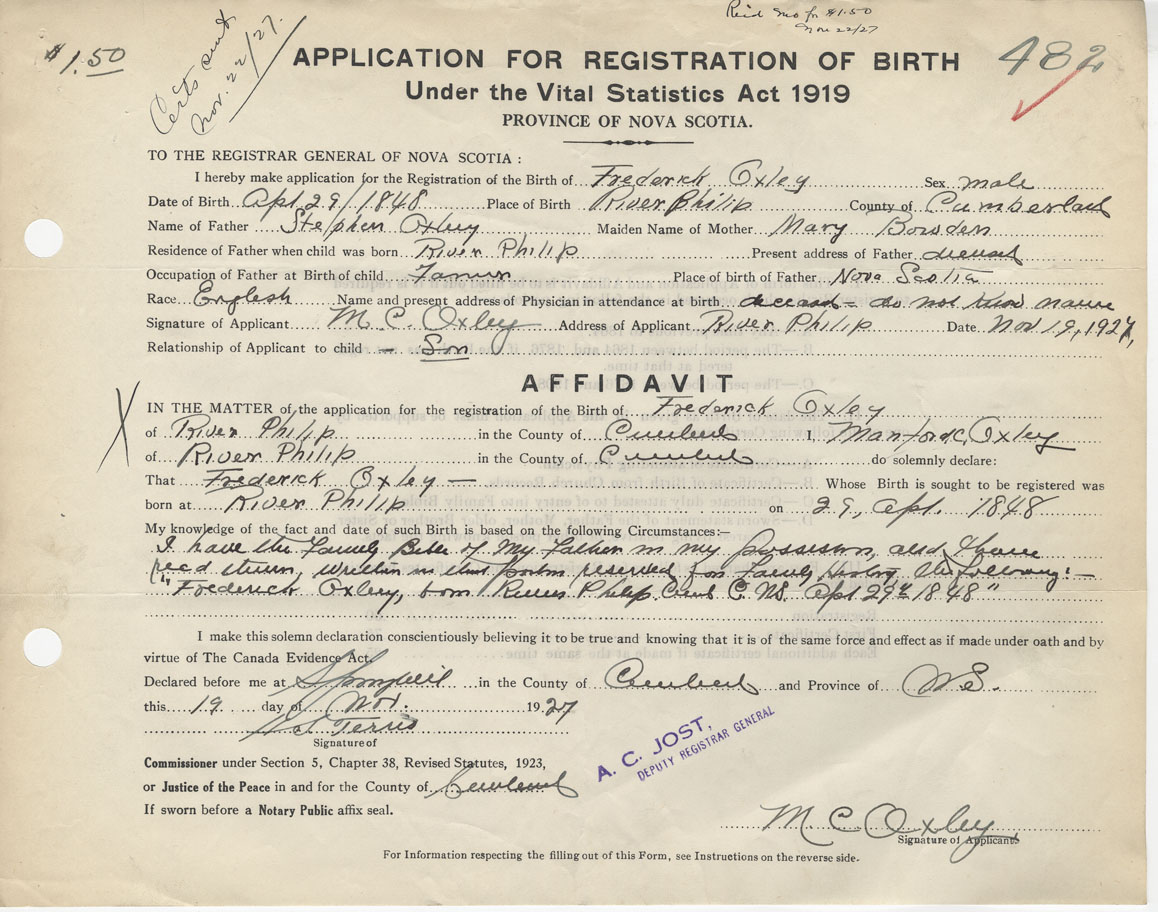 Reid Mo fr $1.50
Nov 22/27
$1.50
Certs sent
Nov. 22/27.
482
APPLICATION FOR REGISTRATION OF BIRTH
Under the Vital Statistics Act 1919
PROVINCE OF NOVA SCOTIA.
TO THE REGISTRAR GENERAL OF NOVA SCOTIA :
I hereby make application for the Registration of the Birth of Frederick Oxley Sex male
Date of Birth Apr 29/1848 Place of Birth River Philip County of Cumberland
Name of Father Stephen Oxley Maiden Name of Mother Mary Bowden
Residence of Father when child was born River Philip Present address of Father deceased
Occupation of Father at Birth of child Farmer Place of birth of Father Nova Scotia
Race English Name and present address of Physician in attendance at birth deceased – do not know name
Signature of Applicant M. C. Oxley Address of Applicant River Philip Date Nov 19, 1927,
Relationship of Applicant to child – Son
AFFIDAVIT
X IN THE MATTER of the application for the registration of the Birth of Frederick Oxley
of River Philip in the County of Cumberld I, Manford C, Oxley
of River Philip in the County of Cumberld do solemnly declare:
That Frederick Oxley — Whose Birth is sought to be registered was
born at River Philip on 29, Apr. 1848
My knowledge of the fact and date of such Birth is based on the following Circumstances:—
I have the Family Bible of My Father in my possession, and I have
read therein, written in that portion reserved for Family History the following:—
" Frederick Oxley, born River Philip Cumb C. NS. Apl 29th 1848 "
I make this solemn declaration conscientiously believing it to be true and knowing that it is of the same force and effect as if made under oath and by
virtue of The Canada Evidence Act.
Declared before me at Springhill in the County of Cumberld and Province of N.S.
this 19 day of Nov. 1927
Terris
Signature of
Commissioner under Section 5, Chapter 38, Revised Statutes, 1923,
or Justice of the Peace in and for the County of Cumberland
If sworn before a Notary Public affix seal.
A. C. JOST,
DEPUTY REGISTRAR GENERAL
M C Oxley
Signature of Applicant
For Information respecting the filling out of this Form, see Instructions on the reverse side.